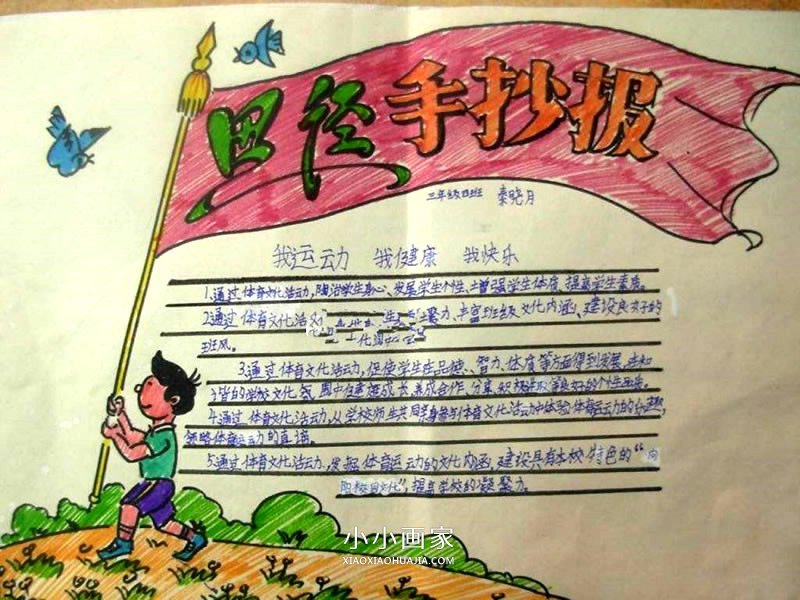 田径手抄报
三年级四班 秦晓月
我运动 我健康 我快乐
1.通过体育文化活动,陶冶学生身心、发展学生个性、增强学生体质、提高学生素质。
2.通过体育文化活 聚力、丰富班级文化内涵、建设良好的
班风。
3.通过体育文化活动,促使学生在品德、智力、体质等方面得到发展,在和
谐的学校文化氛围中健康成长,养成合作、分享、积极进取等良好的个性品质。
4.通过体育文化活动,从学校师生共同参与体育文化活动中体验体育运动的乐趣,
领略体育运动的真谛。
5.通过体育文化活动,发掘体育运动的文化内涵,建设具有本校特色的“
校园文化”,提高学校的凝聚力。
小小画家
XIAOXIAOHUAJIA.COM